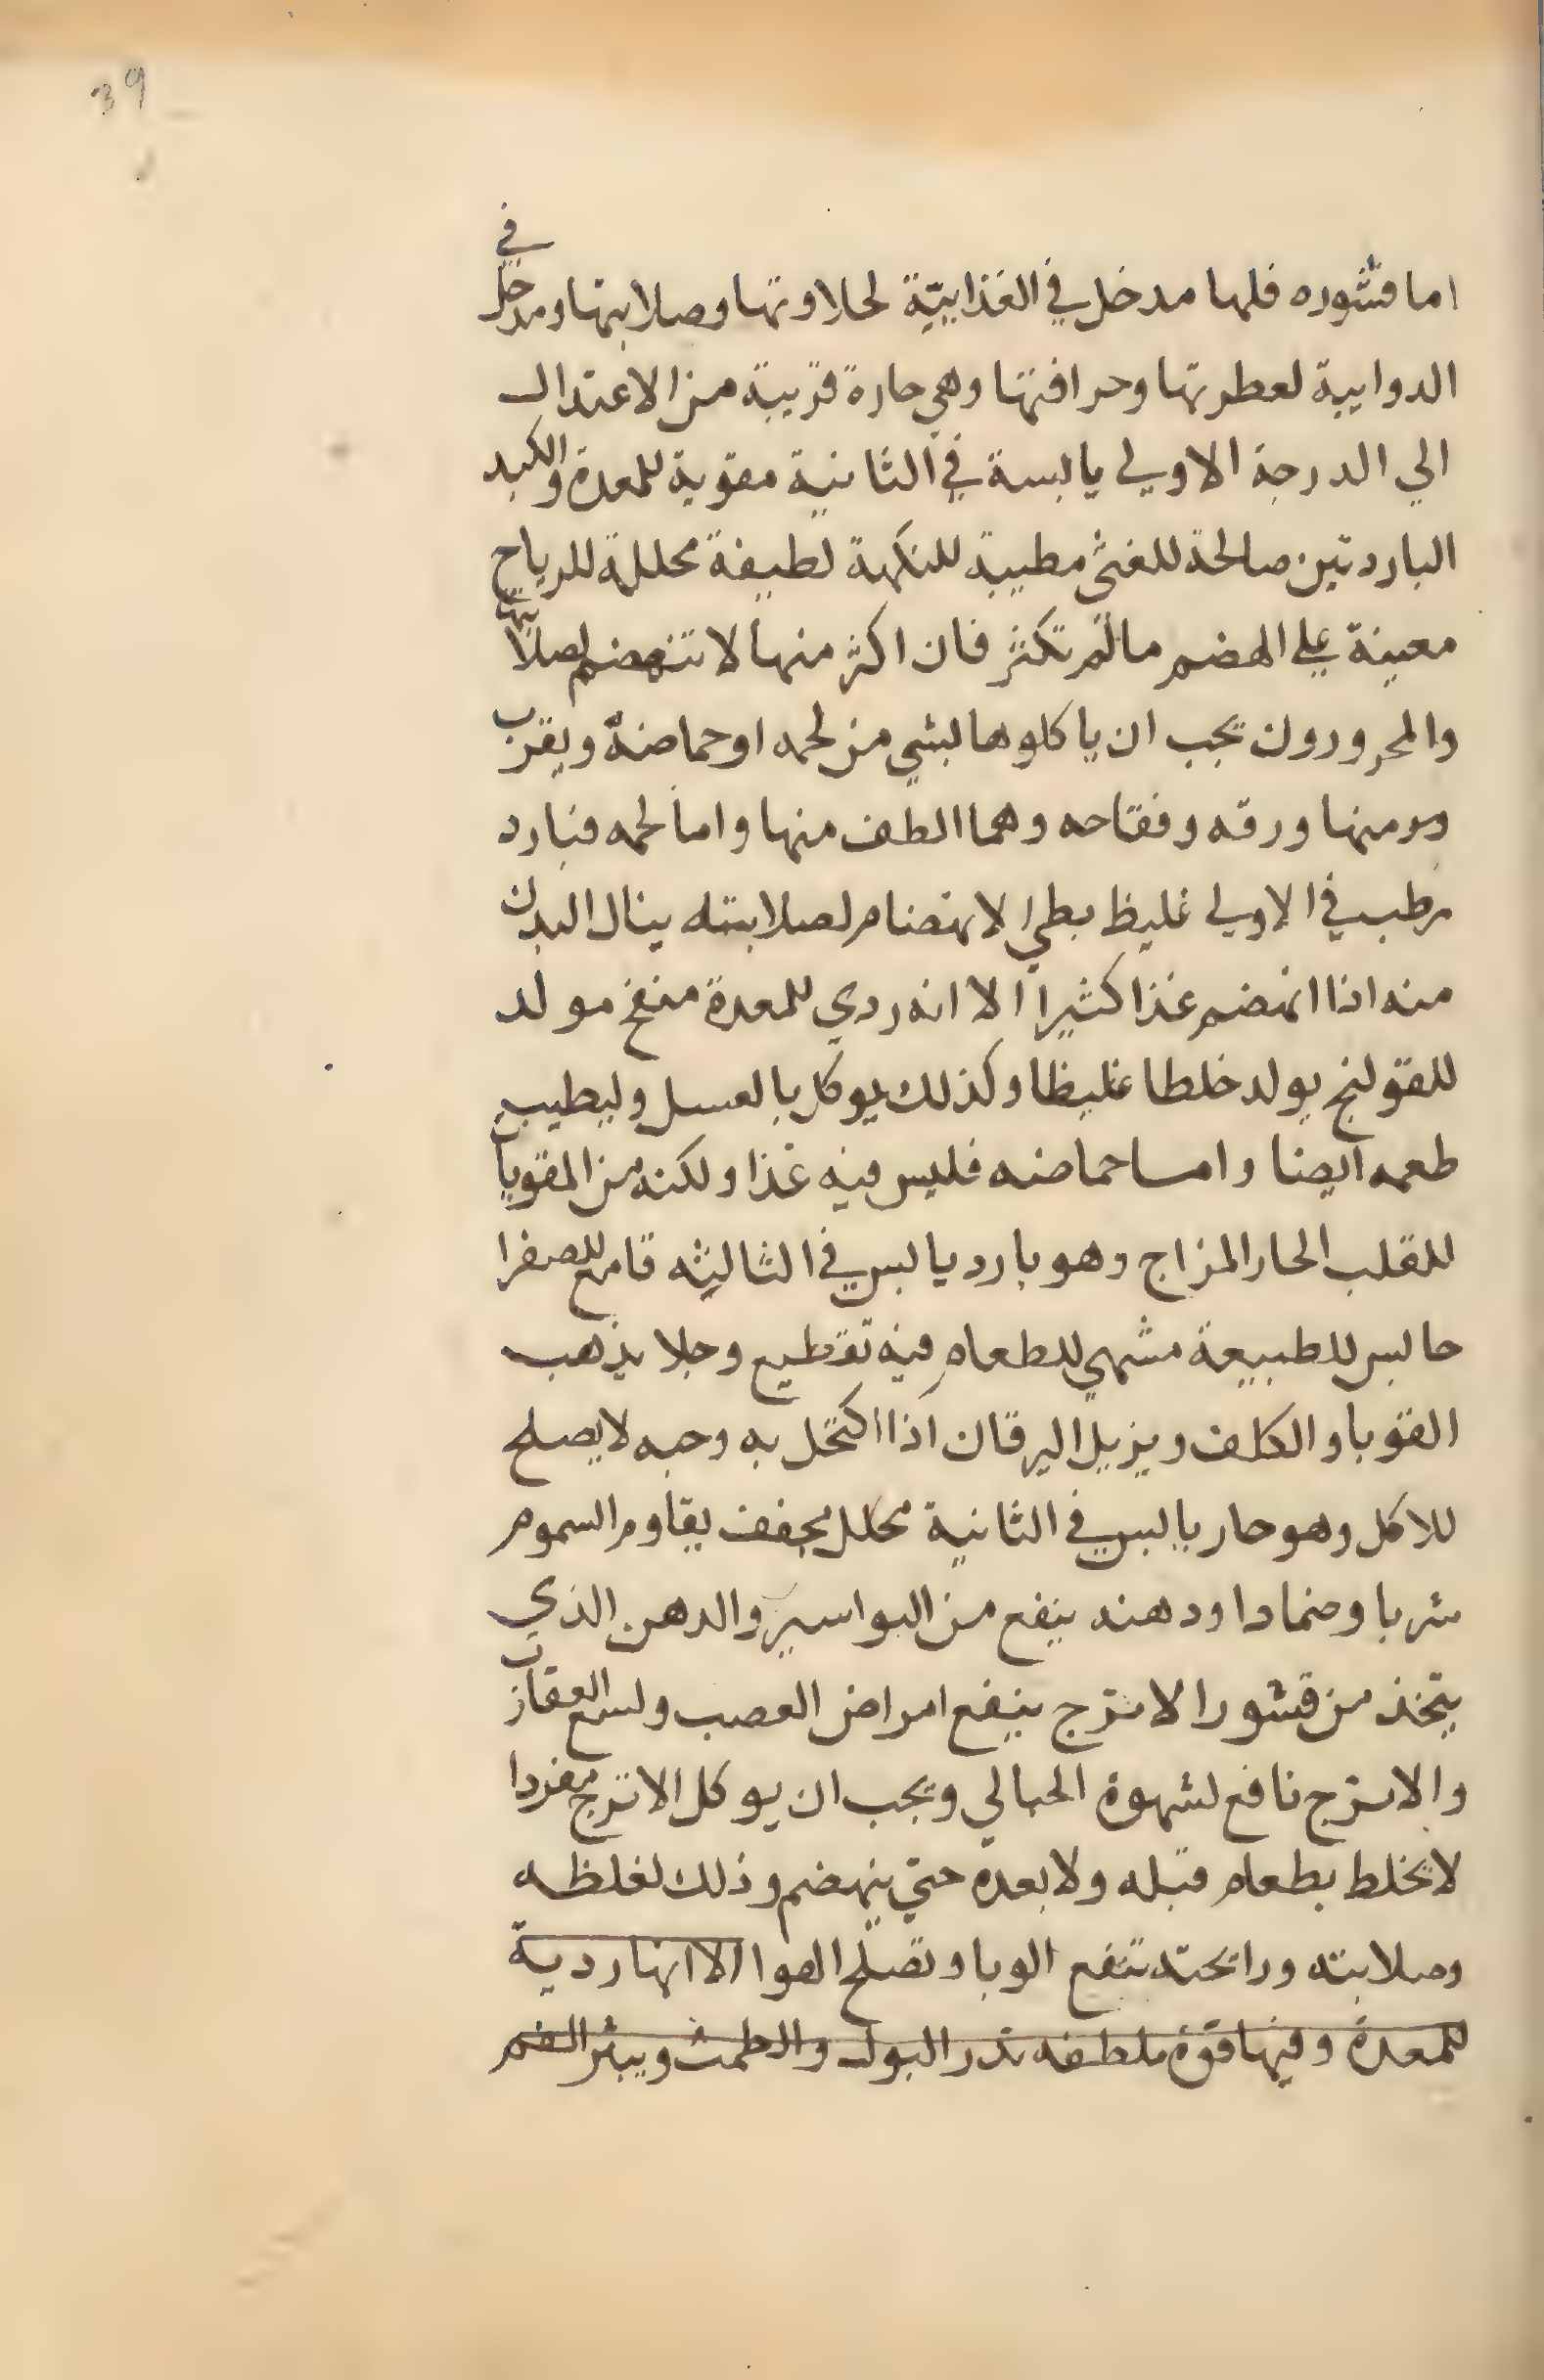 39
اما قشوره فلها مدخل في الغذاييّة لحلاوتها وصلابتها ومدخل في
الدوايية لعطريتها وحرافتها وهي حارة قريبة من الاعتدال
الي الدرجة الاولي يابسة في الثانية مقوية للمعدة والكبد
الباردتين صالحة للغثى مطيبة للنكهة لطيفة محللة للرياح
معينة علي الهضم مالم تكثر فان اكثر منها لا تنهضم لصلابتها
والمحرورون يجب ان ياكلوها بشي من لحمه او حماضه ويقرب
منها ورقه وفقاحه وهما الطف منها واما لحمه فبارد
رطب في الاولي غليظ بطي الانهضام لصلابته ينال البدن
منه اذا انهضم غذا كثيرا الا انه ردي للمعدة منفخ مولد
للقولنج يولد خلطا غليظا وكذلك يوكل بالعسل وليطيب
طعمه ايضا واما حماضه فليس فيه غذا ولكنه من المقويات
للقلب الحار المزاج وهو بارد يابس في الثالثه قامع للصفرا
حابس للطبيعة مشهي للطعام فيه تقطيع وجلا يذهب
القوبا والكلف ويزيل اليرقان اذا اكتحل به وحبه لا يصلح
للاكل وهو حار يابس في الثانية محلل مجفف يقاوم السموم
شربا وضمادا ودهنه ينفع من البواسير والدهن الذي
يتخذ من قشور الاترج ينفع امراض العصب ولسع العقارب
والاترج نافع لشهوة الحبالي ويجب ان يوكل الاترج مفردا
لا يخلط بطعام قبله ولا بعده حتي ينهضم وذلك لغلظه
وصلابته ورايحته تنفع الوبا وتصلح الهوا الا انها ردية
للمعدة وفيها قوة ملطفه تدر البول والطمث ويبثر الفم